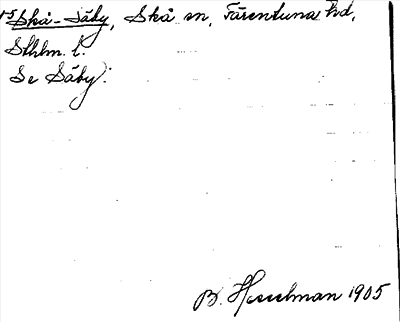 Skå-Säby, Skå sn, Färentuna hd,
Sthlm. l.
Se Säby.
B. Hesselman 1905